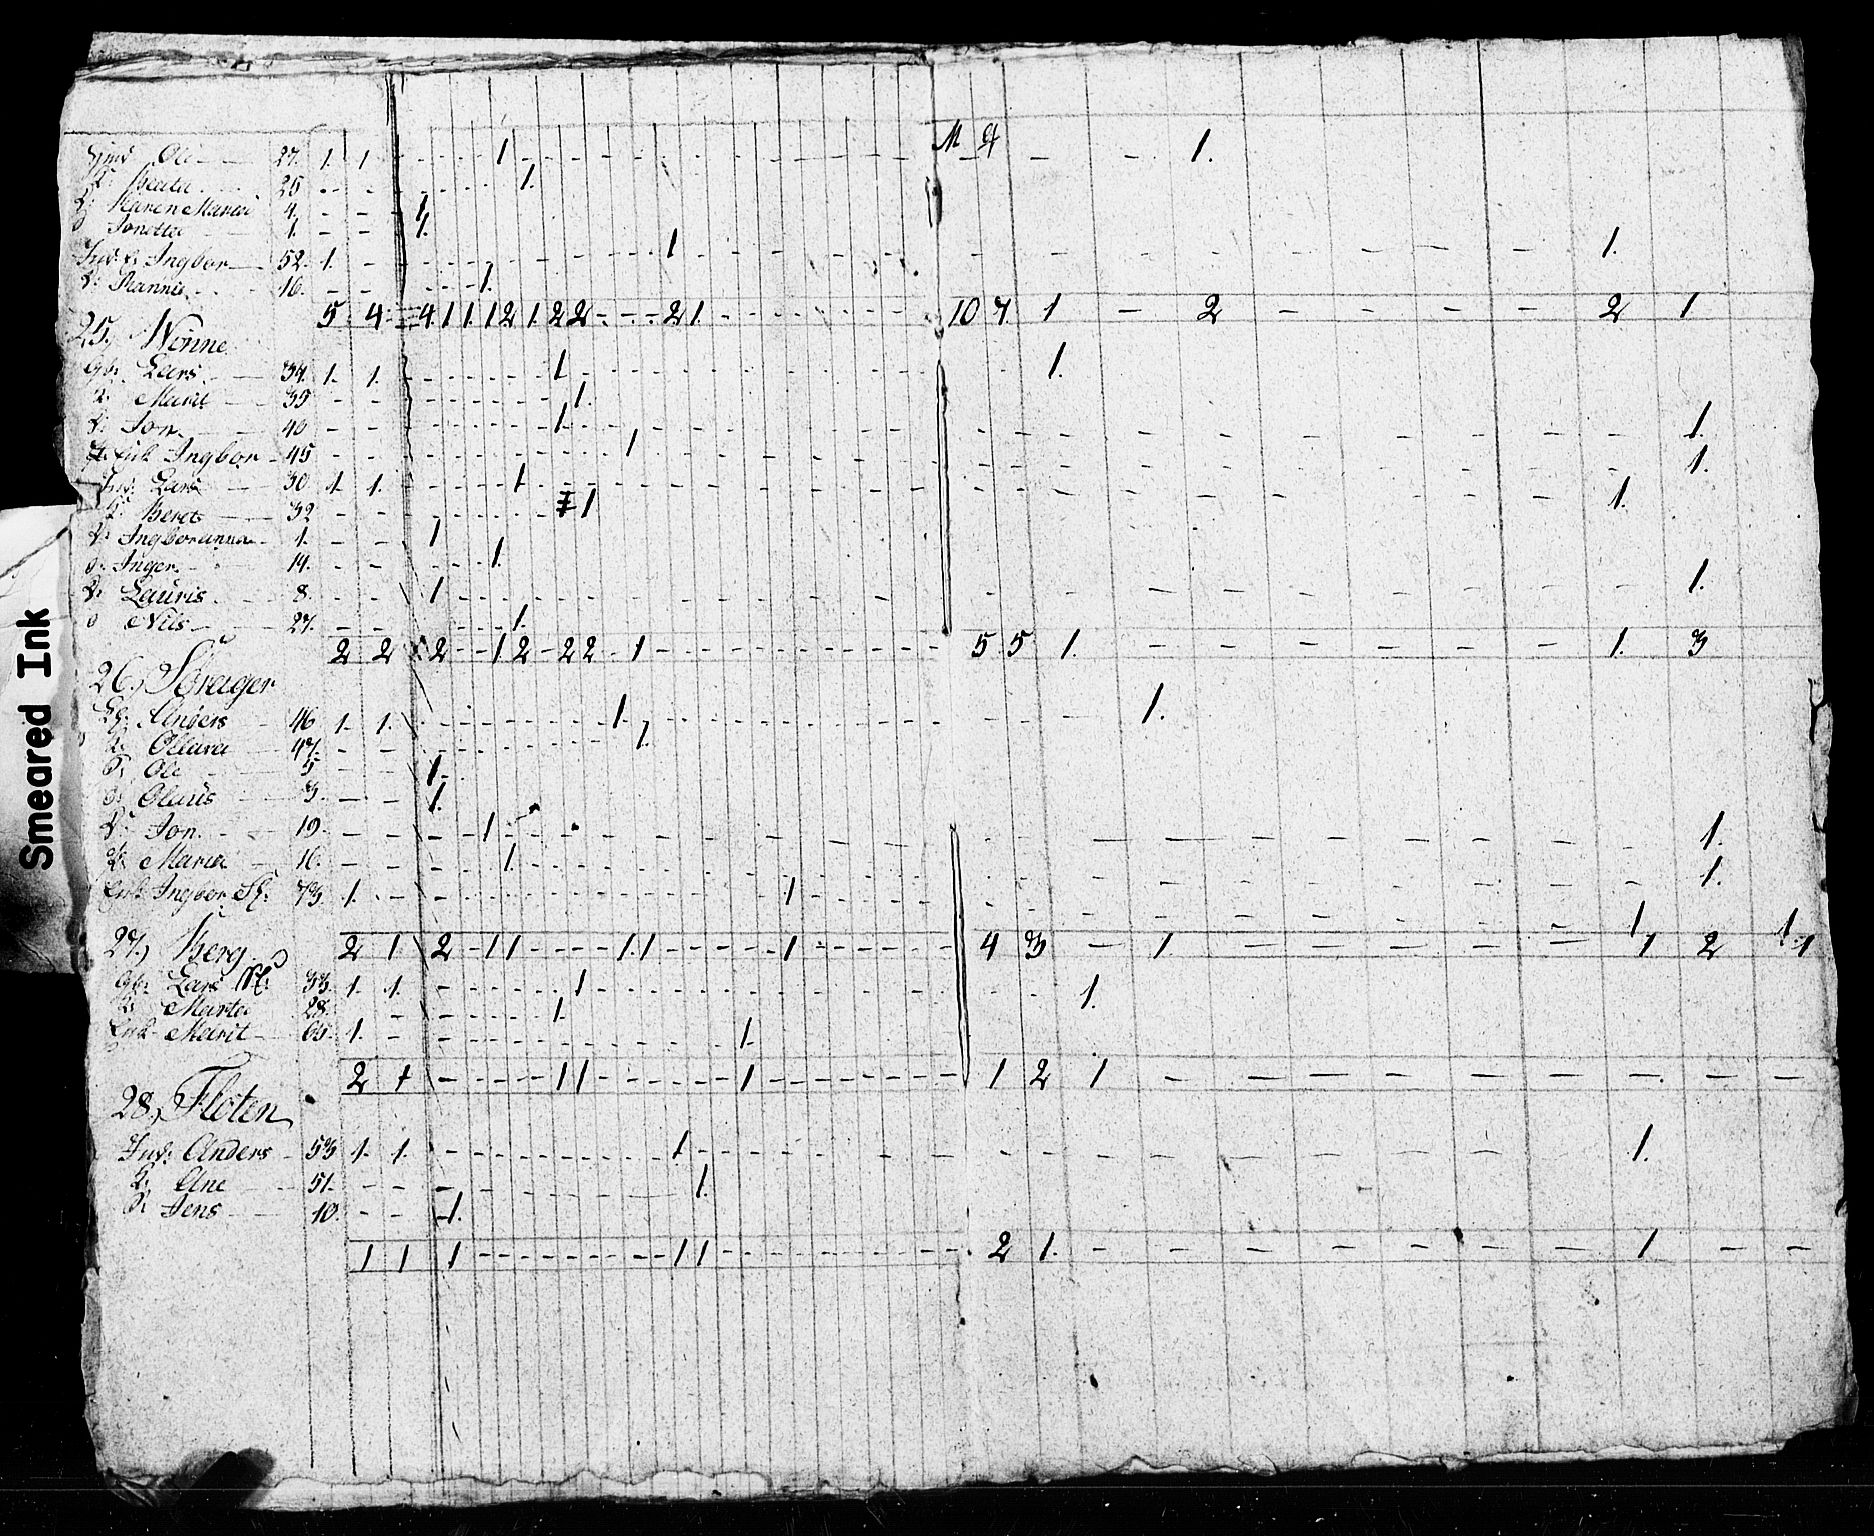 M Q
Ole 27. 1. 1. 1. 1.
Beata 25 1.
Karen Maria 4. 1.
Jonetta 1. 1.
Ingbor 52. 1. 1 1.
Rannie 16. 1.
5 4 4 1 1. 1 2 1. 2 2 - - - 2 1. 10 7. 1 - 2 - - - - 2 1
25, Nonne
Gb: Lars 37. 1. 1. 1 1.
K: Marit 39 1.
Jon 40 1 1.
Ingbor 45 1 1.
Inds: Lars 30 1. 1. 1 1.
K: Beret 32 1
Ingboranna 1. 1
Inger 14. 1.
Lauris 8. 1 1.
Nils 27. 1.
2 2 2 - - 1 2 - 2 2 - 1 5 5 1. - - - - - - 1. 3
26, Skrager
Anders 46 1. 1. 1. 1.
K: Ollava 47. 1.
S: Ole 5 1.
Olaus 3. 1.
Jon 19. 1 1.
Maria 16. 1. 1.
Enk: Ingbor 73. 1. 1 1 1
2 1 2 - 1 1 - - - 1. 1 - - - 1 4 3 - 1. - - - - - 1 2 1
27, Berg
Gb: Lars 33. 1. 1. 1 1.
K: Marta 28. 1.
Enk: Marit 65. 1. 1.
2 1 - - - - - 1 1 - - - - - 1. 1 2 1 - - - - - - - - -
28, Floten
Inds: Anders 53 1. 1. 1 1.
K: Ane 51. 1.
S: Jens 10. 1.
1 1 1 - - - - - - - - - 1 1 2 1. - - - - - - - 1 - -
Smeared Ink